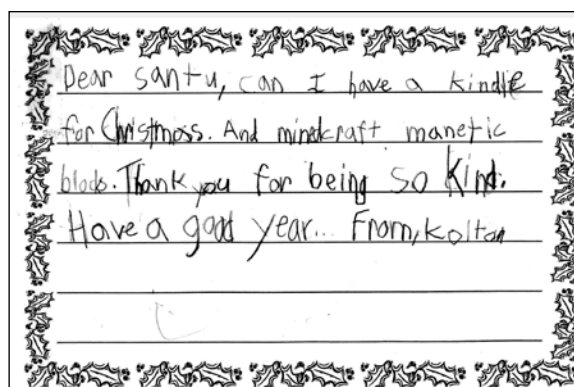 Dear santu, can I have a kindle
for Christmoss. And mindcraft manetic
blocks. Thank you for being so kind.
Have a good year... From, Kolton